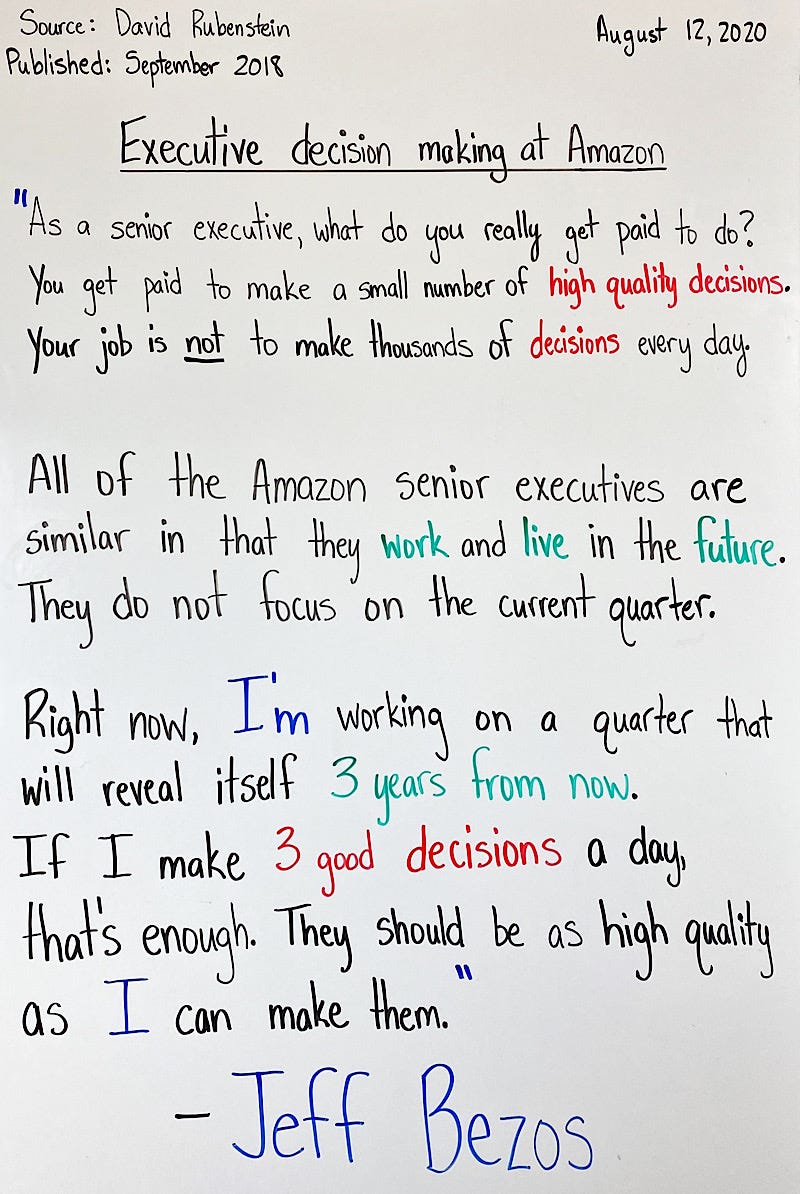 Source: David Rubenstein
August 12, 2020
Published: September 2018
Executive decision making at Amazon
"As a senior executive, what do you really get paid to do?
You get paid to make a small number of high quality decisions.
Your job is not to make thousands of decisions every day.
All of the Amazon senior executives are
similar in that they work and live in the future.
They do not focus on the current quarter.
Right now, I'm working on a quarter that
will reveal itself 3 years from now.
If I make 3 good decisions a day,
that's enough. They should be as high quality
as I can make them."
- Jeff Bezos